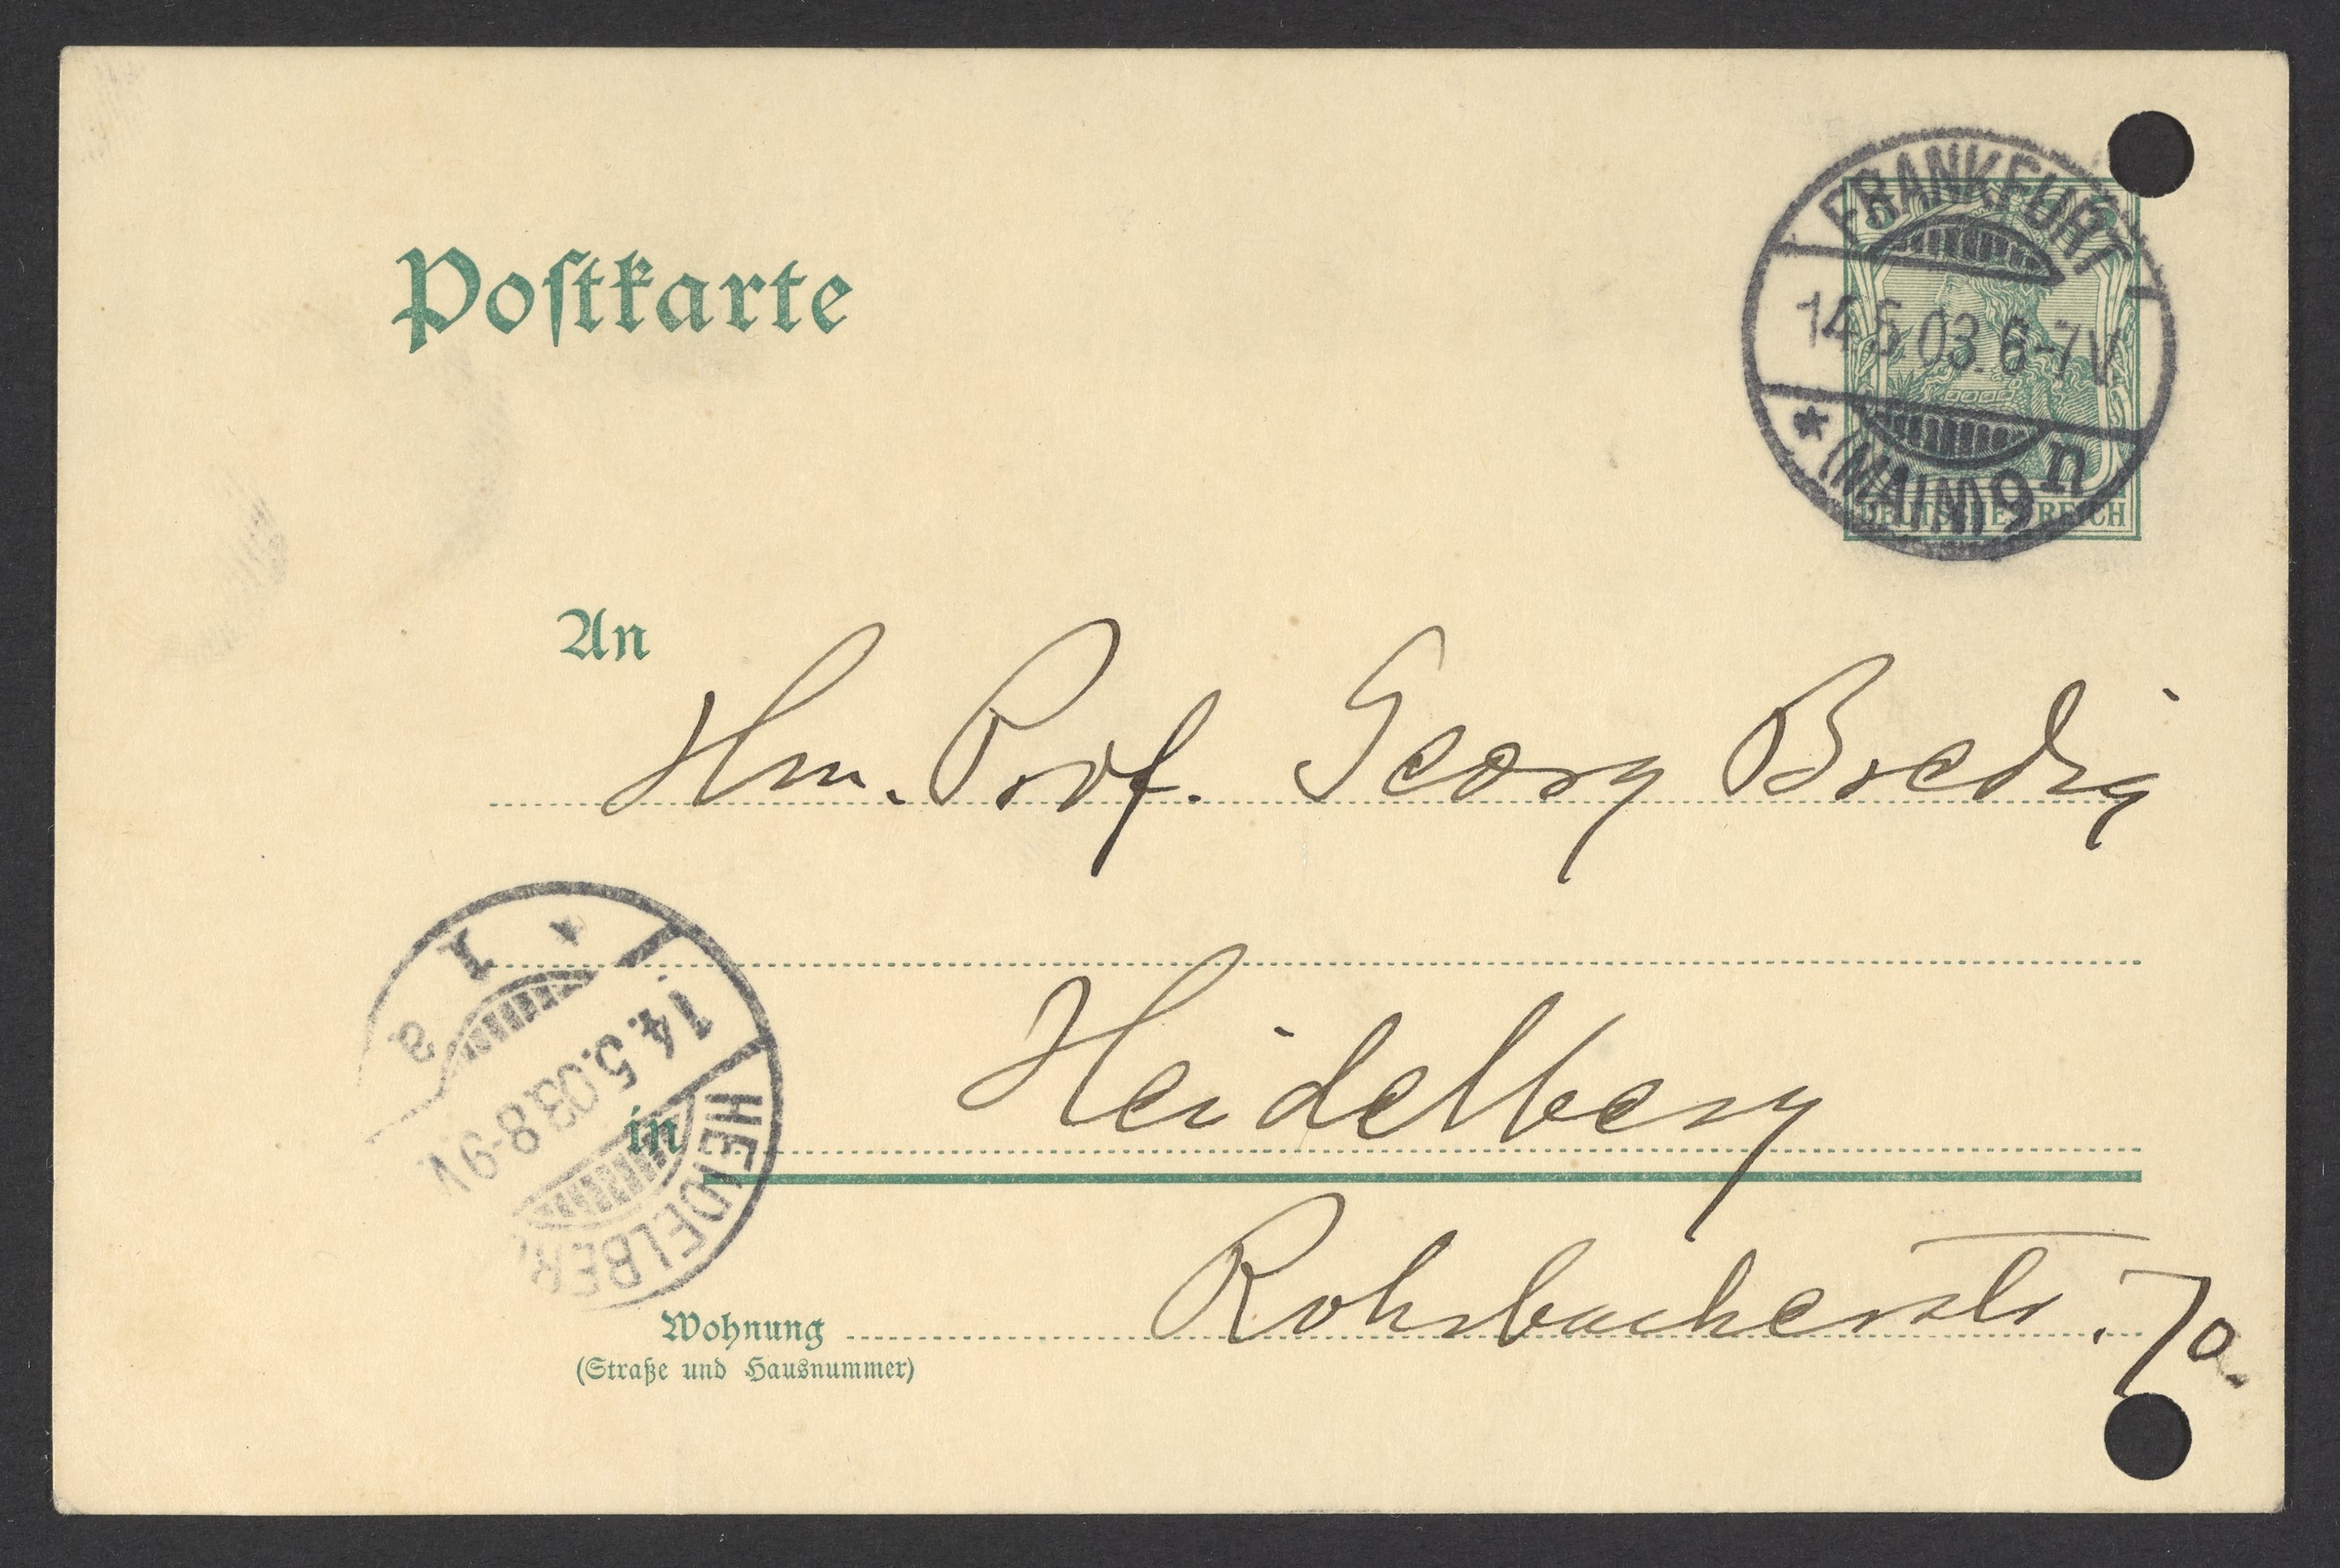 Postkarte
FRANKFURT
14.5.03.6-7V.
* (MAIN) 9 n
DEUTSCHES REICH
An
Hrn. Prof. Georg Bredig
* 1 a
14.5.03.8-9V.
HEIDELBER
in Heidelberg
Wohnung Rohrbacherstr. 70.
(Straße und Hausnummer)